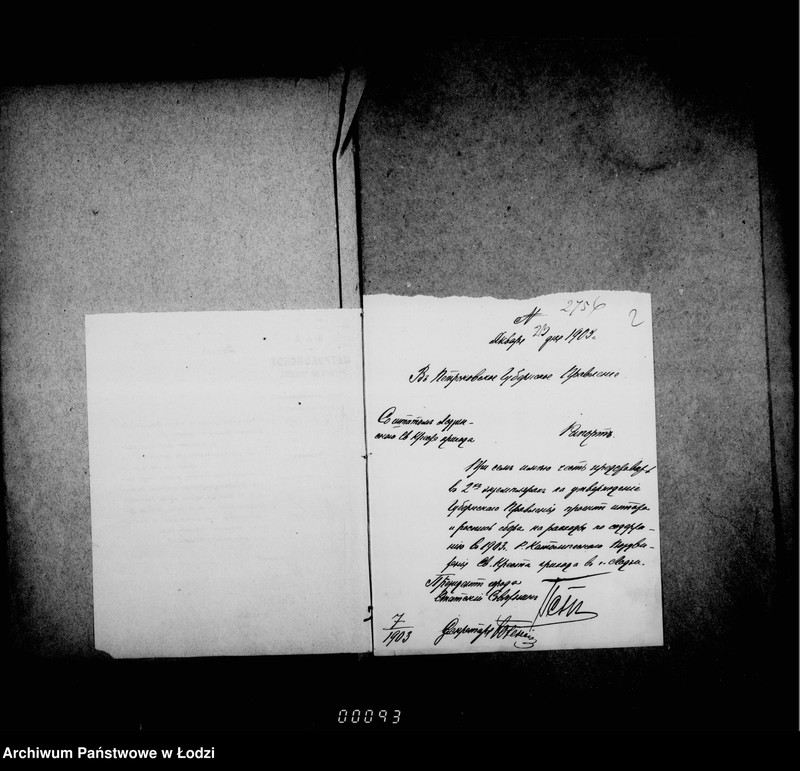 № 2756
2
Января 29 дня 1903 г.
Въ Петроковское Губернское Правление
Со штатомъ Лодзин-
скаго Св. Креста прихода
Рапортъ.
При семъ имею честь представить
въ 2хъ экземплярахъ на утверждение
Губернскаго Правления проектъ штата
и роспись сбора на расходы по содержа-
нию въ 1903 г. Р. Католическаго
Св. Креста прихода въ г. Лодзи.
Президентъ города
Статский Советникъ
7
1903
Секретарь
00093
Archiwum Państwowe w Łodzi